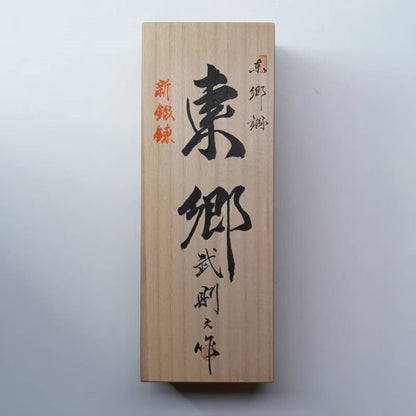 東郷鋼
東郷
武則之作
新鍛錬